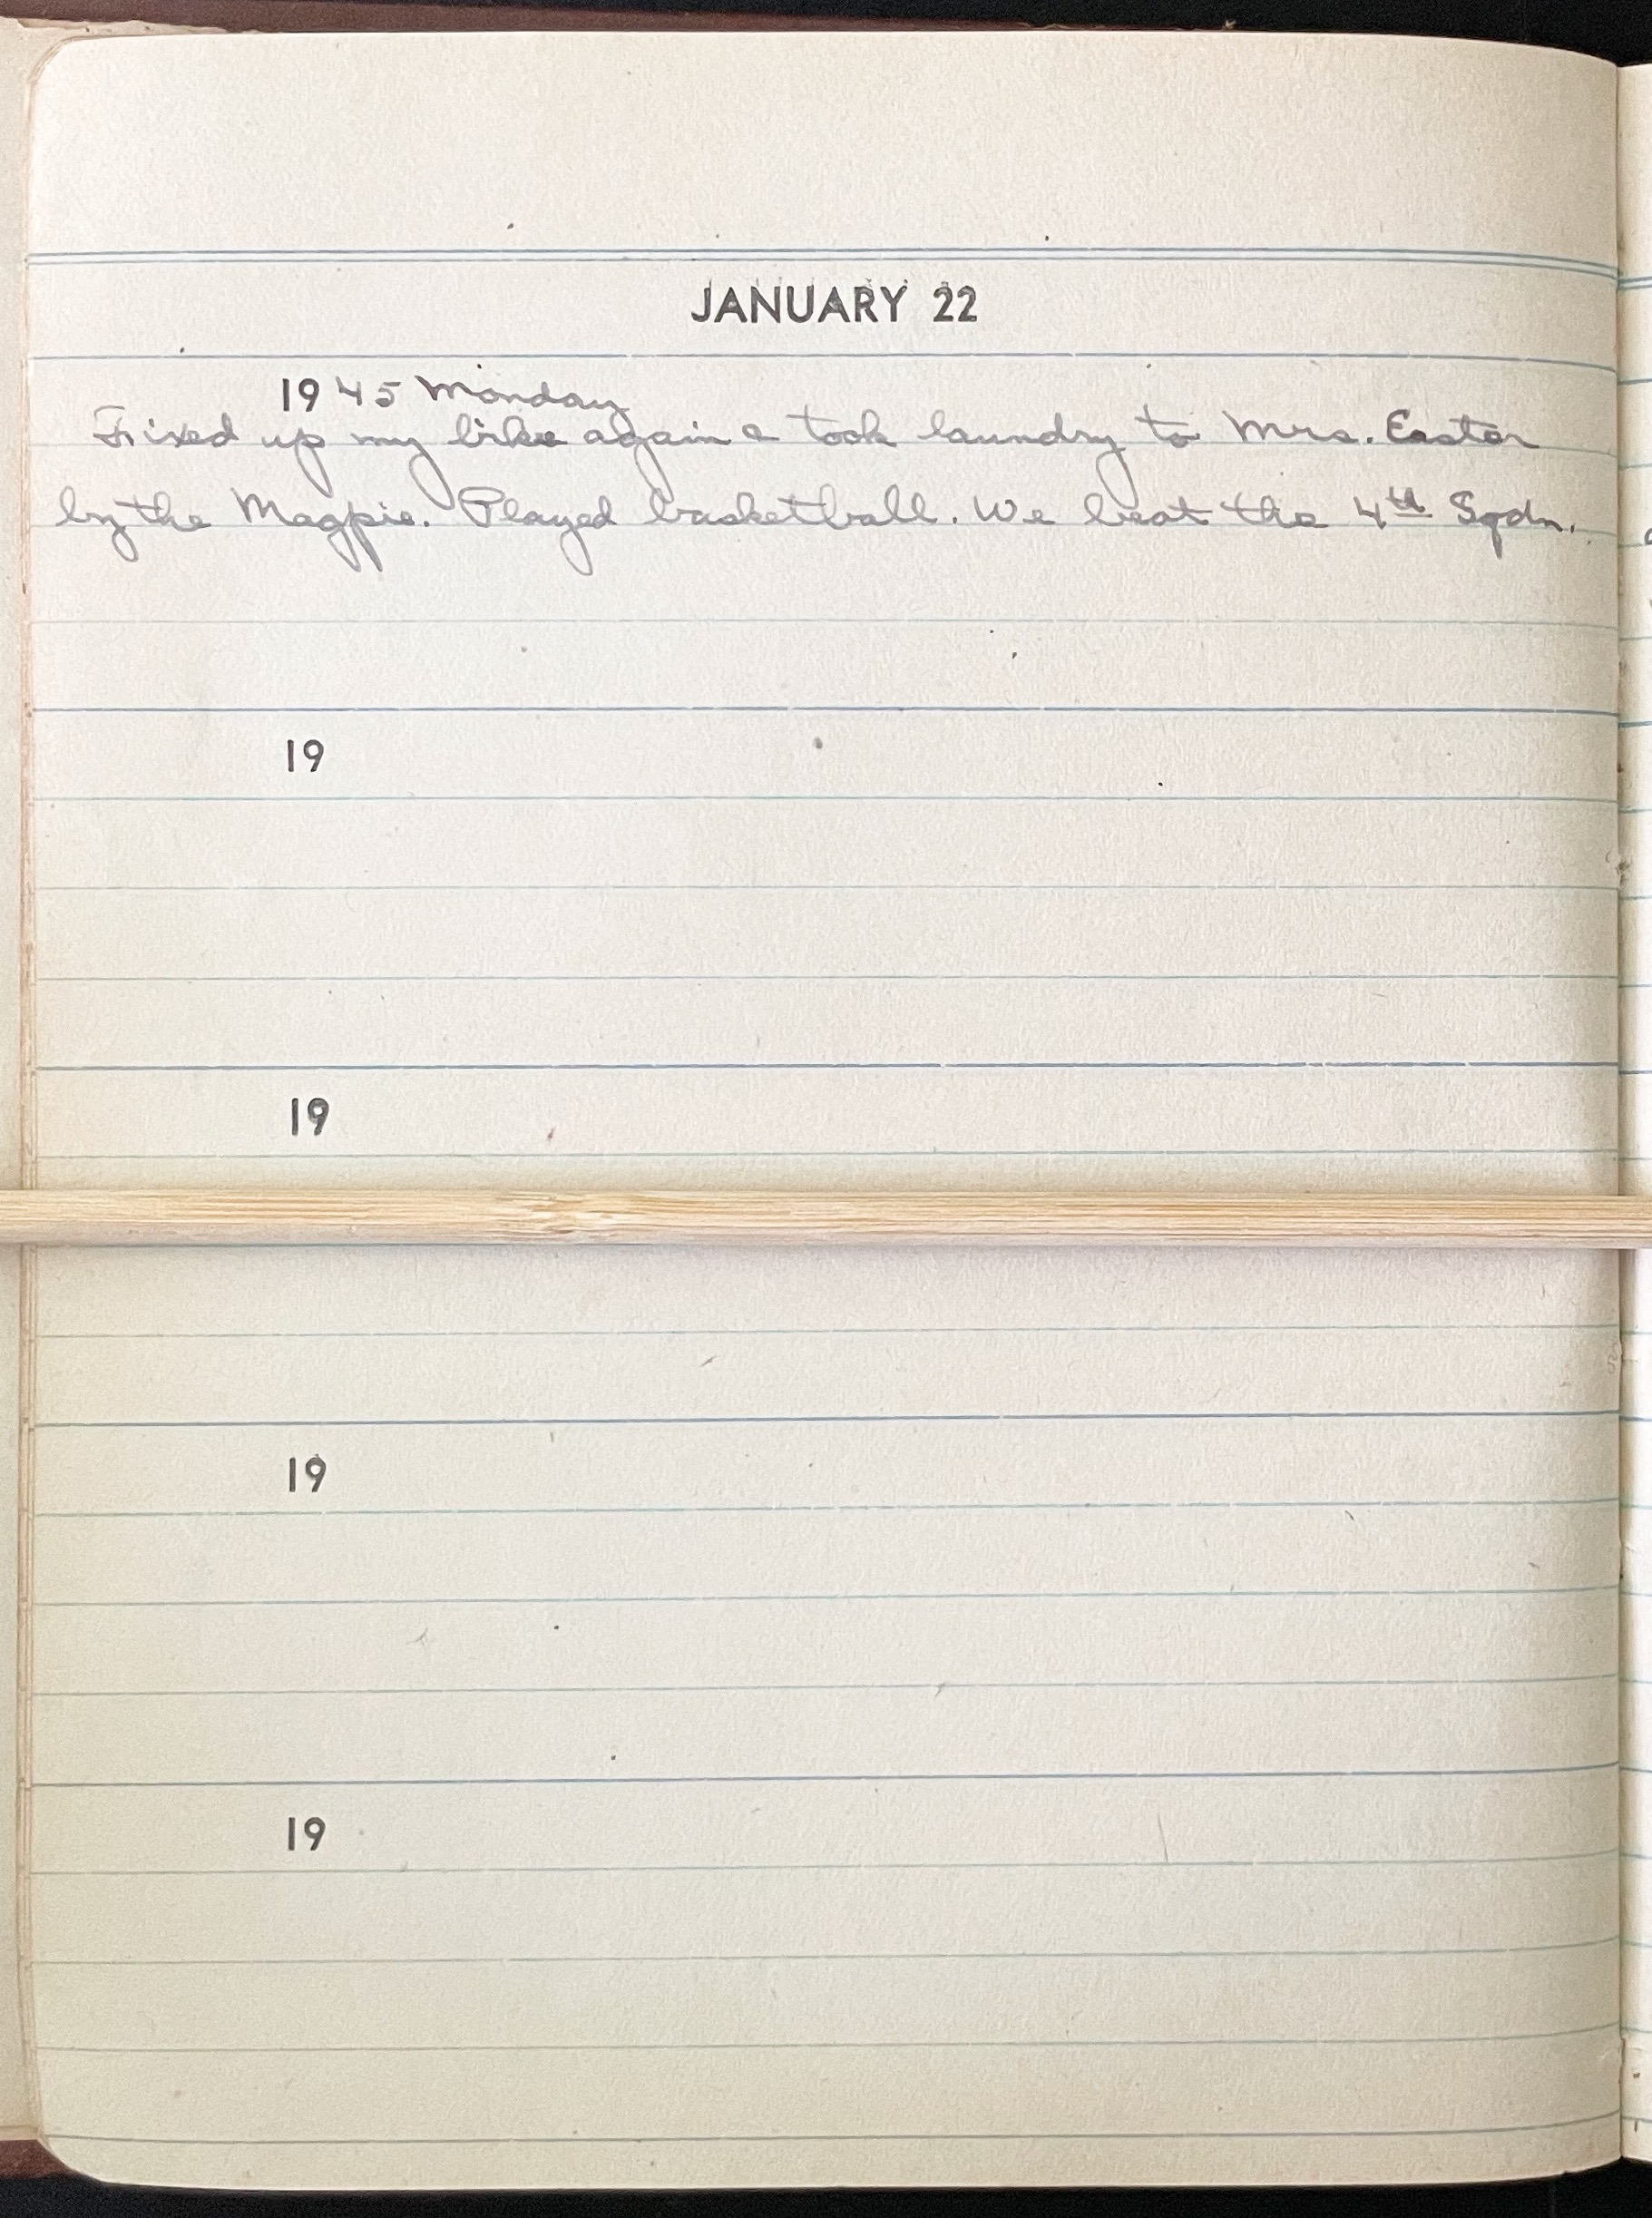 JANUARY 22
1945 Monday
Fixed up my bike again & took laundry to Mrs. Easter
by the Magpie. Played basketball. We beat the 4th Sqdn.
19
19
19
19